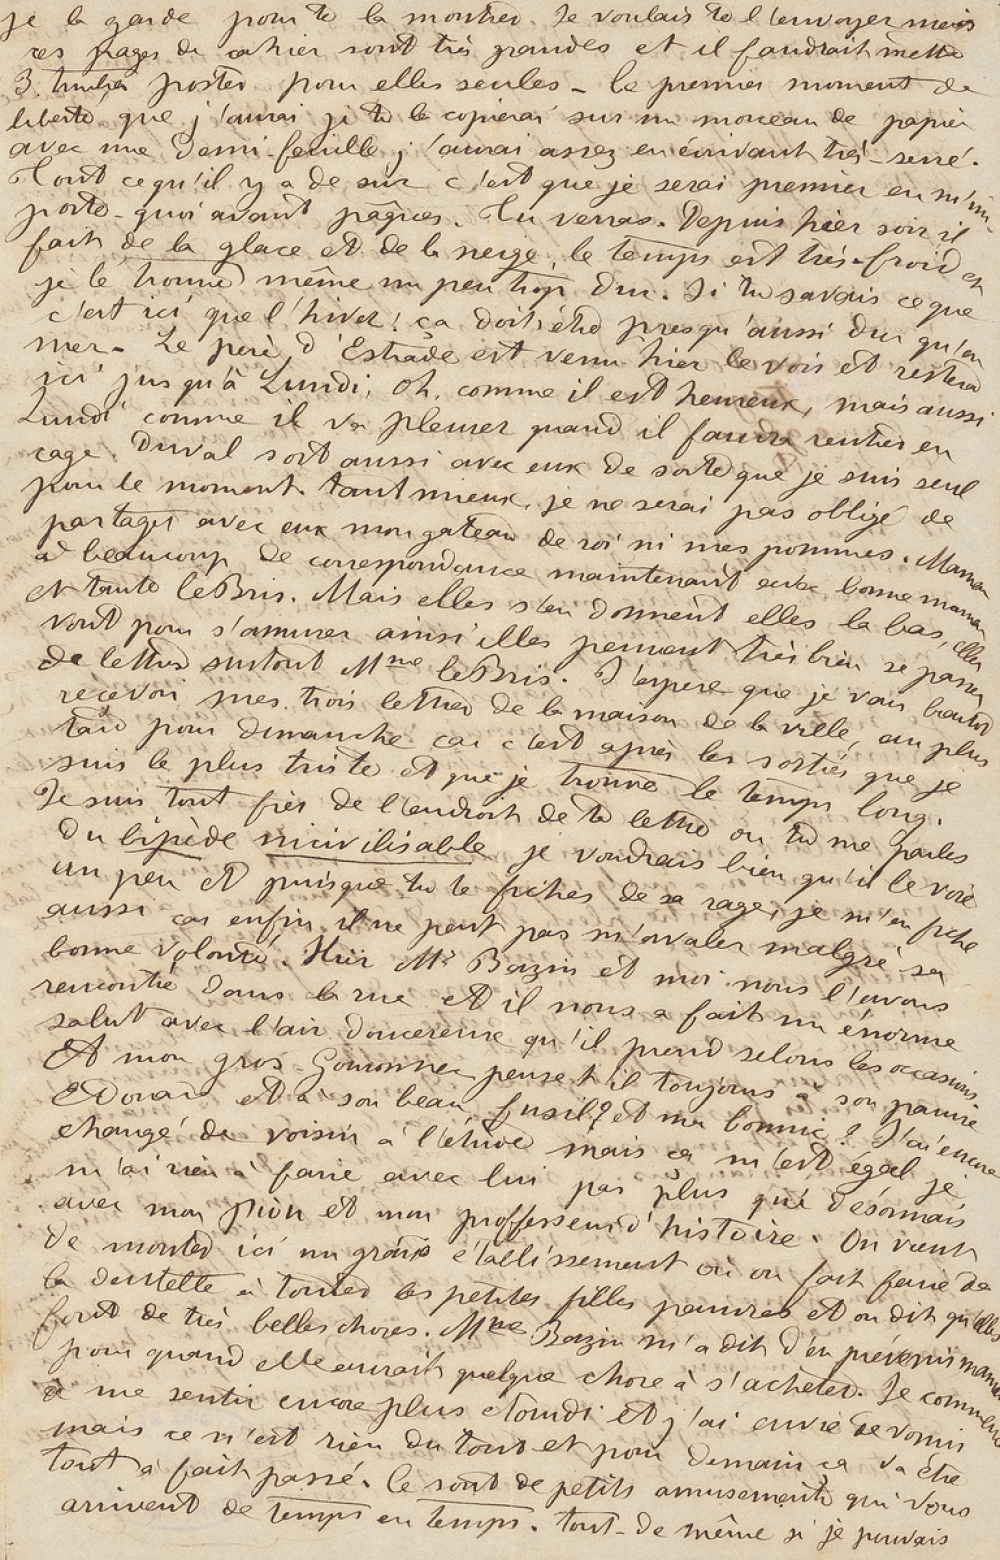 je la garde pour te la montrer. Je voulais te l'envoyer mais
ces pages de cahier sont très grandes et il faudrait mettre
3 timbres postes pour elles seules - le premier moment de
liberté que j'aurai je te le copierai sur un morceau de papier
avec une demi-feuille j'aurai assez en écrivant très-serré.
Tout ce qu'il y a de sur c'est que je serai premier en n'im-
porte-quoi avant pâques. Tu verras. Depuis hier soir il
fait de la glace et de la neige, le temps est très-froid et
je le trouve même un peu trop dur. Si tu savais ce que
c'est ici que l'hiver! ça doit être presqu'aussi dur qu'en
mer. Le père d'Estrade est venu hier le voir et restera
ici jusqu'à Lundi, oh, comme il est heureux, mais aussi
Lundi comme il va pleurer quand il faudra rentrer en
cage. Duval sort aussi avec eux de sorte que je suis seul
pour le moment. tant mieux, je ne serai pas obligé de
partager avec eux mon gateau de roi ni mes pommes. Maman
a beaucoup de correspondance maintenant entre bonne maman
et tante le Bris. Mais elles s'en donnent elles là bas, elles
vont pour s'amuser ainsi elles peuvent très bien se passer
de lettres surtout Mme le Bris. J'espère que je vais bientot
recevoir mes trois lettres de la maison de la ville, au plus
tard pour dimanche car c'est après les sorties que je
suis le plus triste et que je trouve le temps long.
Je suis tout fier de l'endroit de ta lettre ou tu me parles
du bipède incivilisable je voudrais bien qu'il le voie
un peu et puisque tu te fiches de sa rage, je m'en fiche
aussi car enfin il ne peut pas m'avaler malgré sa
bonne volonté. Hier Mr Bazin et moi nous l'avons
rencontré dans la rue et il nous a fait un énorme
salut avec l'air doucereux qu'il prend selons les occasions.
Et mon gros pense t'il toujours à son pauvre
Edouard et à son beau fusil? et ma bonnie? J'ai encore
changé de voisin à l'étude mais ça m'est égal je
n'ai rien à faire avec lui pas plus que désormais
avec mon pion et mon proffesseur d'histoire. On vient
de monter ici un grand établissement où on fait faire de
la dentelle à toutes les petites filles pauvres et on dit qu'elles
font de très belles choses. Mme Bazin m'a dit d'en prévenir maman
pour quand elle aurait quelque chose à s'acheter. Je commence
à me sentir encore plus étourdi et j'ai envie de vomir
mais ce n'est rien du tout et pour demain ça va être
tout à fait passé. Ce sont de petits amusements qui vous
arrivent de temps en temps. tout-de même si je pouvais